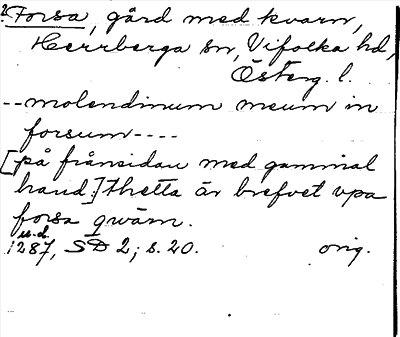 ? Forsa, gård med kvarn,
Herrberga sn, Vifolka hd,
Österg. l.
-- molendinum meum in
forsum ----
[på frånsidan med gammal
hand:] thetta är brefvet vpa
forsa qwärn.
u.d.
1287, SD 2; s. 20. orig.